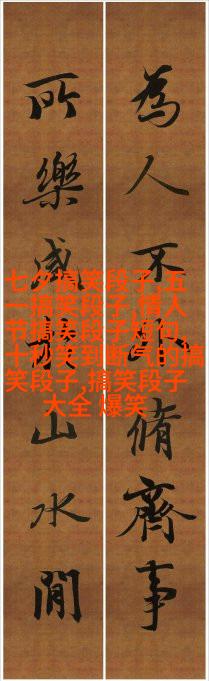 為人不脩齊事
所樂咸山水間
七夕搞笑段子,五
一搞笑段子,情人
节搞笑段子短句,
十秒笑到断气的搞
笑段子,搞笑段子
大全 爆笑